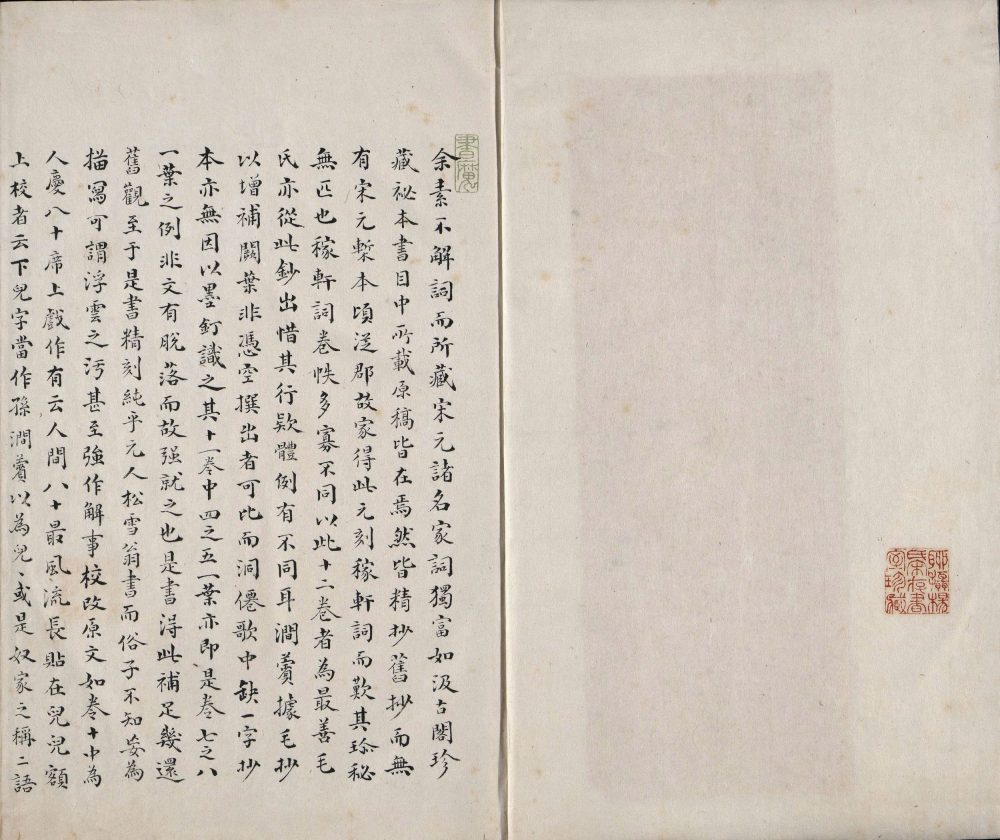 余素不解詞而所藏宋元諸名家詞獨富如汲古閣珍
藏祕本書目中所載原稿皆在焉然皆精抄舊抄而無
有宋元槧本頃從郡故家得此元刻稼軒詞而歎其珍秘
無匹也稼軒詞卷帙多寡不同以此十二卷者為最善毛
氏亦從此鈔出惜其行欵體例有不同耳澗薲據毛抄
以增補闕葉非憑空撰出者可比而洞僊歌中缺一字抄
本亦無因以墨釘識之其十一卷中四之五一葉亦即是卷七之八
一葉之例非文有脫落而故强就之也是書得此補足幾還
舊觀至于是書精刻純乎元人松雪翁書而俗子不知妄為
描寫可謂浮雲之汚甚至強作解事校改原文如卷十中為
人慶八十席上戲作有云人間八十最風流長貼在兒兒額
上校者云下兒字當作孫澗薲以為兒〻或是奴家之稱二語